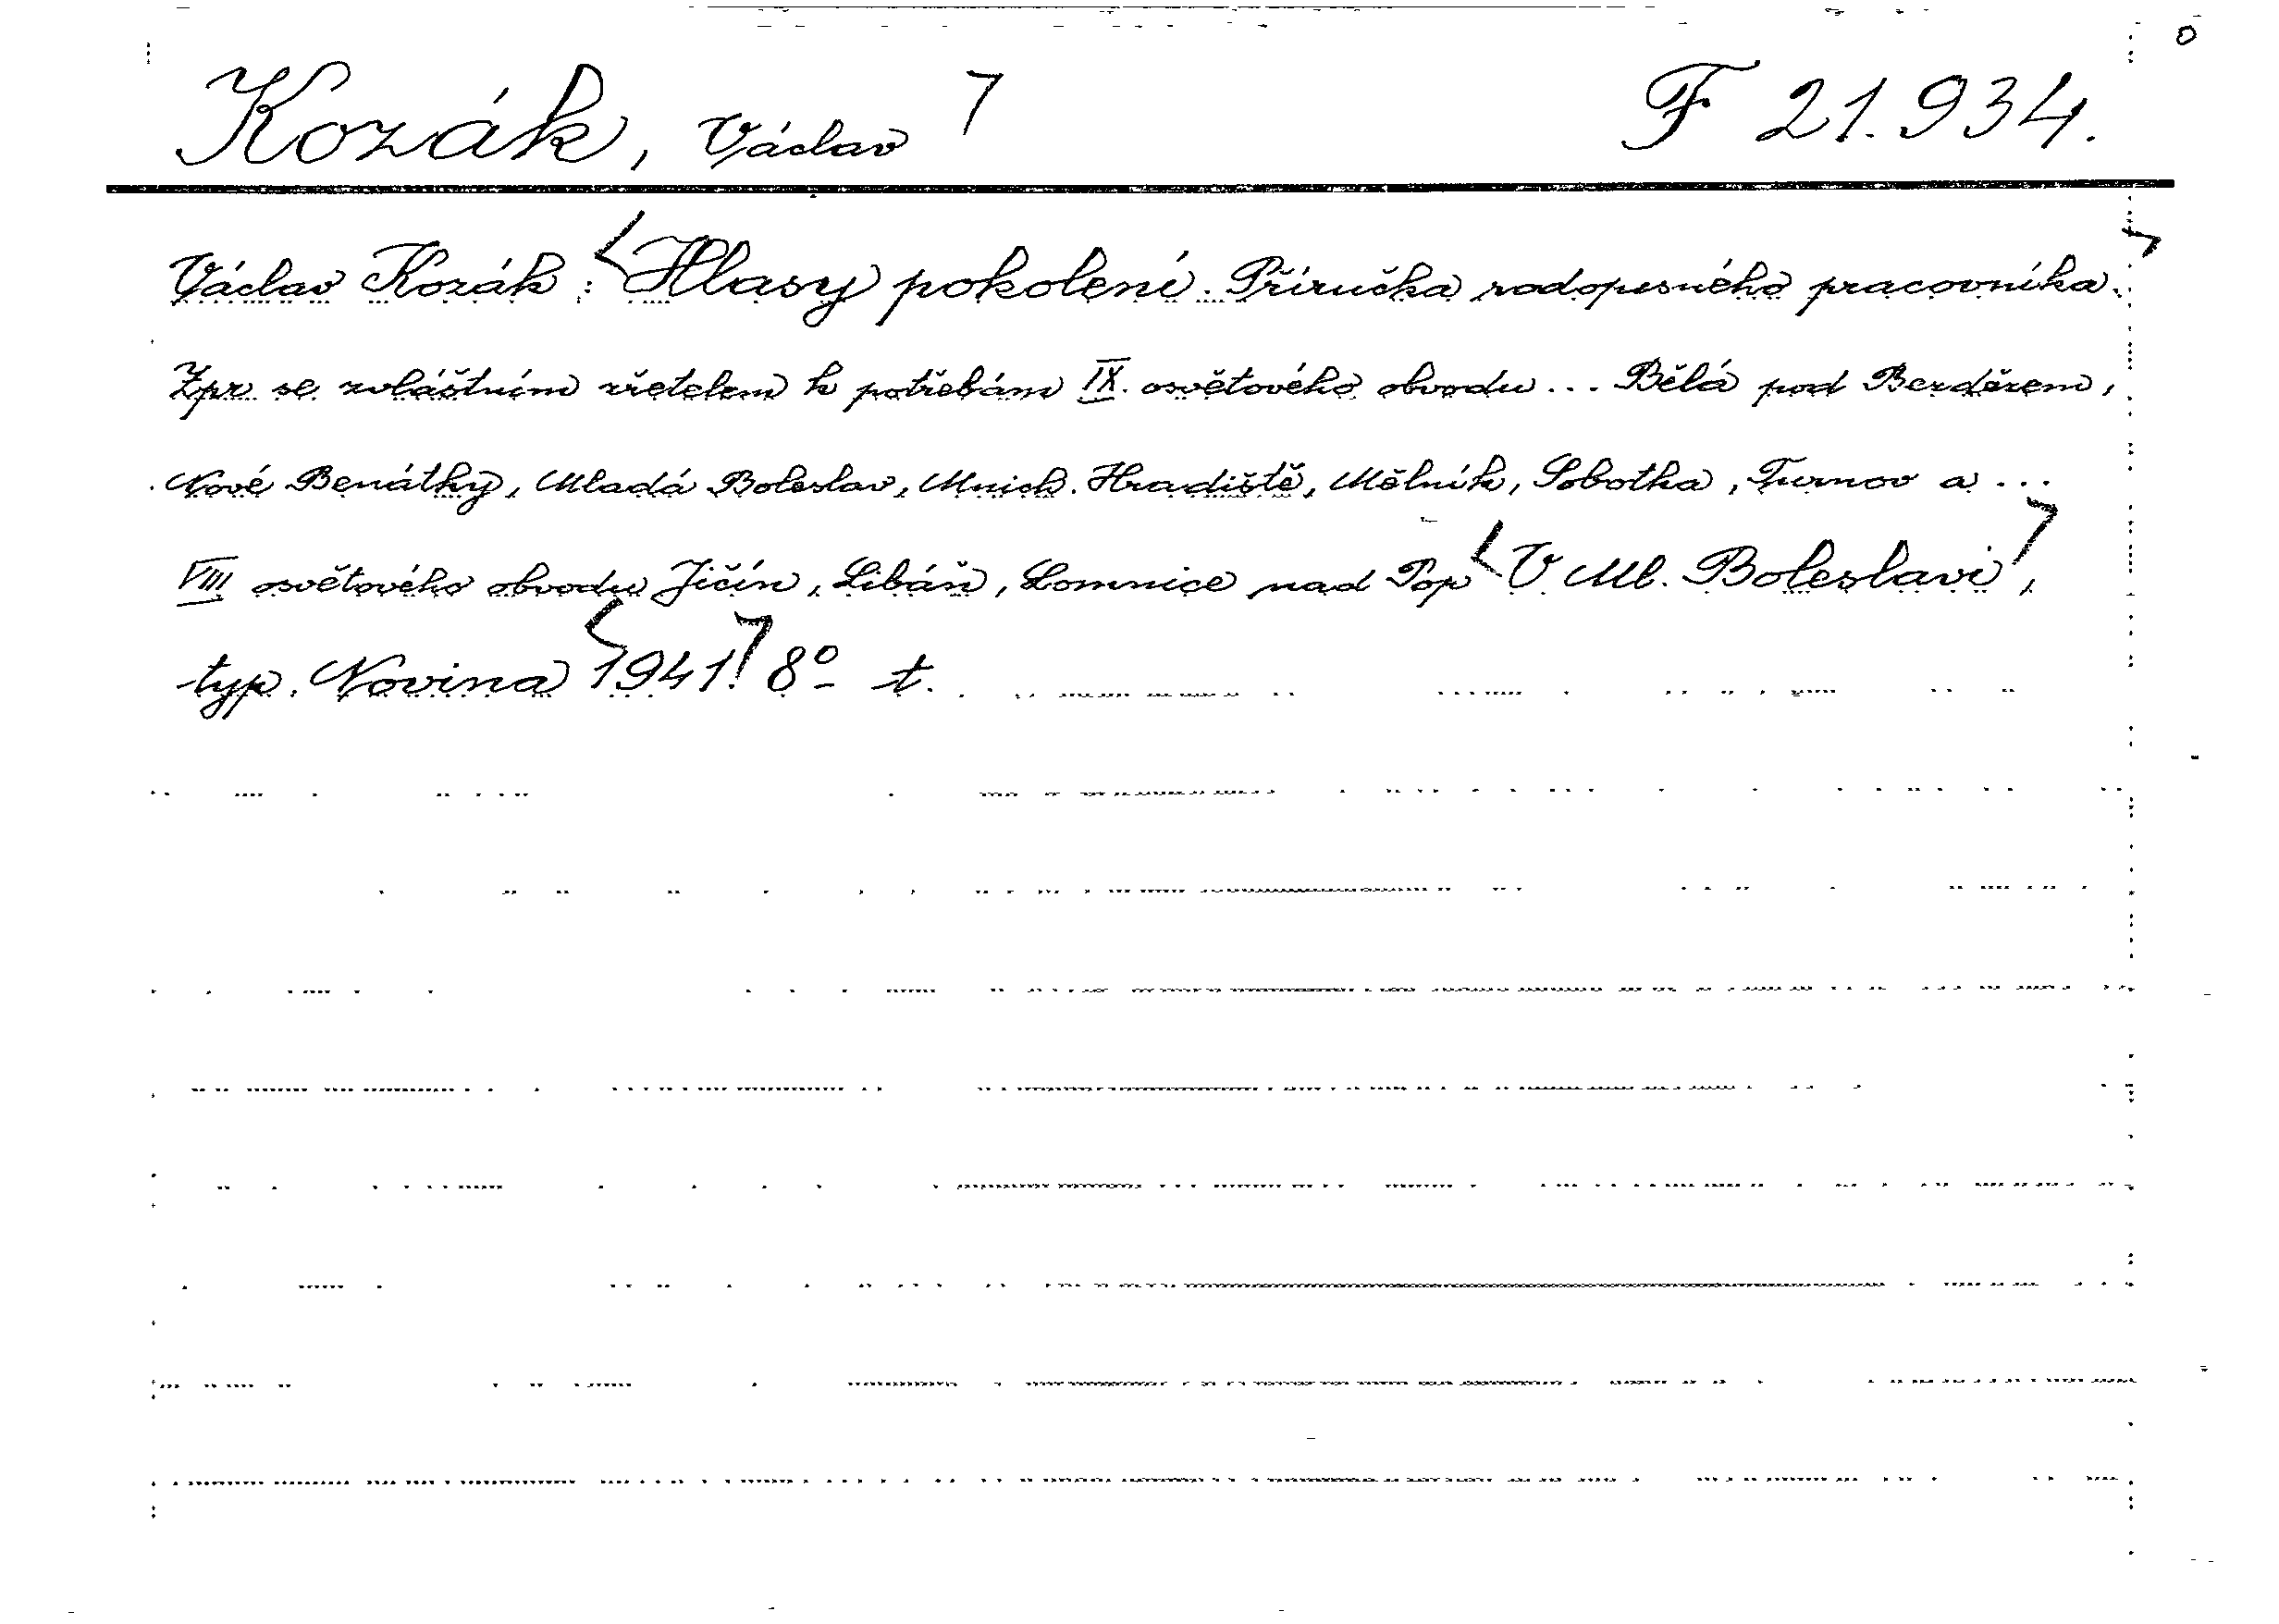 Kozák, Václav F 21.934.
Václav Kozák: Hlasy pokolení. Příručka rodopisného pracovníka.
Zpr. se zvláštním zřetelem k potřebám IX. osvětového obvodu ... Bělá pod Bezdězem,
Nové Benátky, Mladá Boleslav, Mnich. Hradiště, Mělník, Sobotka, Turnov a ...
VIII osvětového obvodu Jičín, Libáň, Lomnice nad Pop V Ml. Boleslavi,
typ. Novina 1941. 8° t.